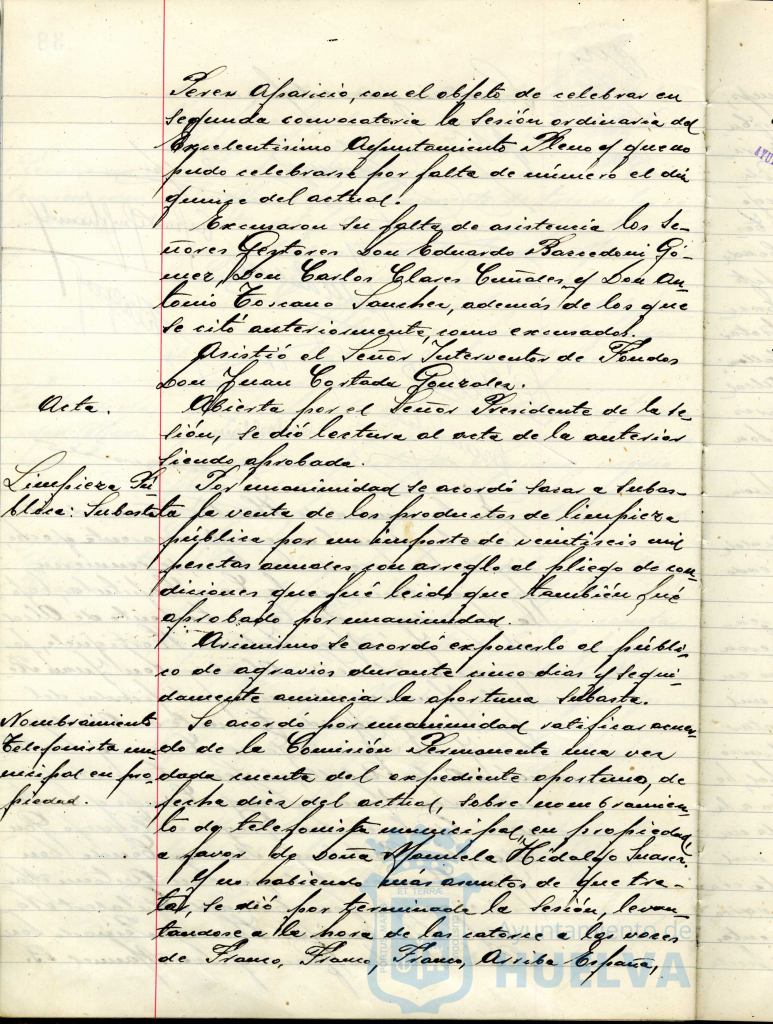 Perez Aparicio, con el objeto de celebrar en
segunda convocatoria la sesión ordinaria del
Excelentísimo Ayuntamiento Pleno y que no
pudo celebrarse por falta de número el dia
quince del actual.
Excusaron su falta de asistencia los Se-
ñores Gestores Don Eduardo Gó-
mez, Don Carlos Clares Cuñales y Don An-
tonio Toscano Sanchez, además de los que
se citó anteriormente, como excusados.
Asistió el Señor Interventor de Fondos
Don Juan Cortada Gonzalez.
Acta.
Abierta por el Señor Presidente de la se-
sión, se dió lectura al acta de la anterior
siendo aprobada.
Limpieza Pú-
blica: Subasta
Por unanimidad se acordó sacar a subas-
ta la venta de los productos de limpieza
pública por un importe de veintiseis mil
pesetas anuales con arreglo al pliego de con-
diciones que fué leido que también fué
aprobado por unanimidad.
Asimismo se acordó exponerlo al públi-
co de agravios durante cinco dias y segui-
damente anunciar la oportuna subasta.
Nombramiento
Telefonista mu-
nicipal en pro-
piedad.
Se acordó por unanimidad ratificar acuer-
do de la Comisión Permanente una vez
dada cuenta del expediente oportuno, de
fecha diez del actual, sobre nombramien-
to de telefonista municipal, en propiedad,
a favor de Doña Manuela Hidalgo Suarez.
Y no habiendo más asuntos de que tra-
tar, se dió por terminada la sesión, levan-
tandose a la hora de las catorce a las voces
de Franco, Franco, Franco, Arriba España,
Ayuntamiento de
HUELVA